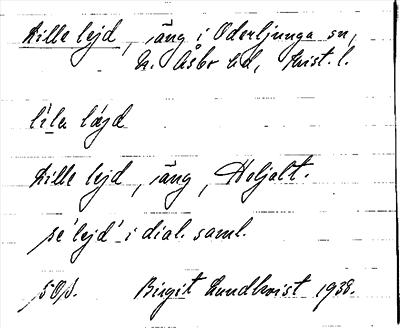 Lille lejd, äng i Oderljunga sn,
N. Åsbo hd, Krist. l.
lila läjd
Lille lejd, äng, Heljalt.
se 'lejd' i dial. saml.
Birgit Lundkvist 1938.